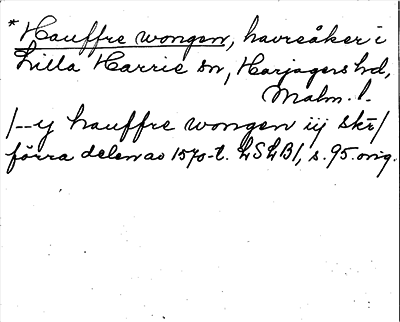 * Hauffre wongen, havreåker i
Lilla Harrie sn, Harjagers hd,
Malm. l.
/--y hauffre wongen iij skr/
förra delen av 1570-t. LSLB1, s. 95. orig.